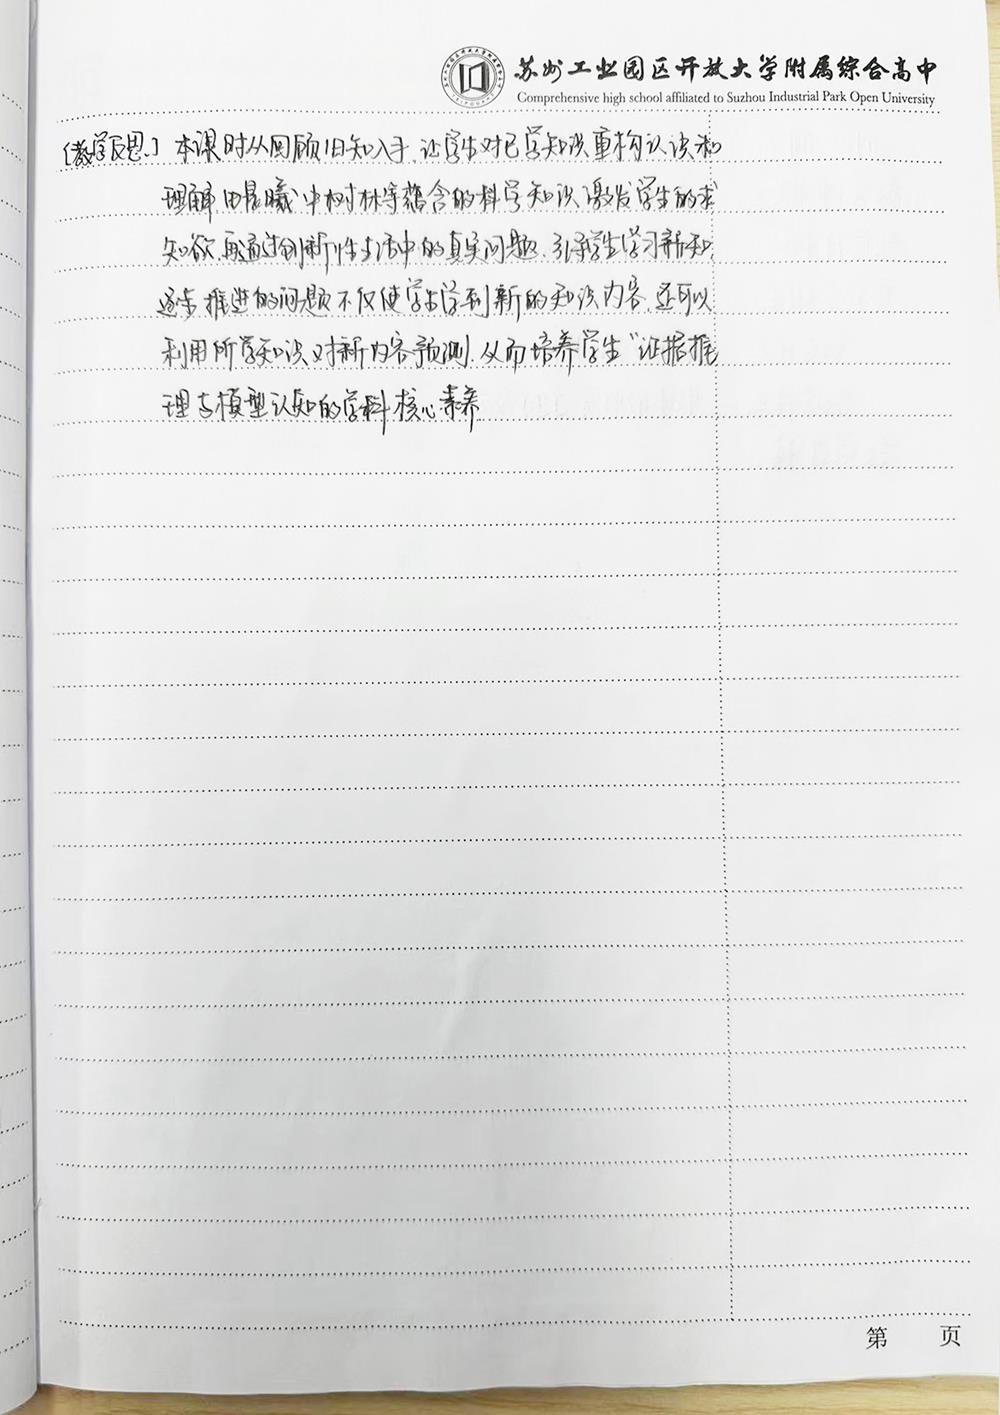 苏州工业园区开放大学附属综合高中
Comprehensive high school affiliated to Suzhou Industrial Park Open University
[教学反思] 本课时从回顾旧知入手,让学生对已学知识重构认识和
理解由晨曦中树林等蕴含的科学知识激发学生的求
知欲,再通过创新性生活中的真实问题,引导学生学习新知,
逐步推进的问题不仅使学生学到新的知识内容,还可以
利用所学知识对新内容预测,从而培养学生“证据推
理与模型认知的学科核心素养
第 页